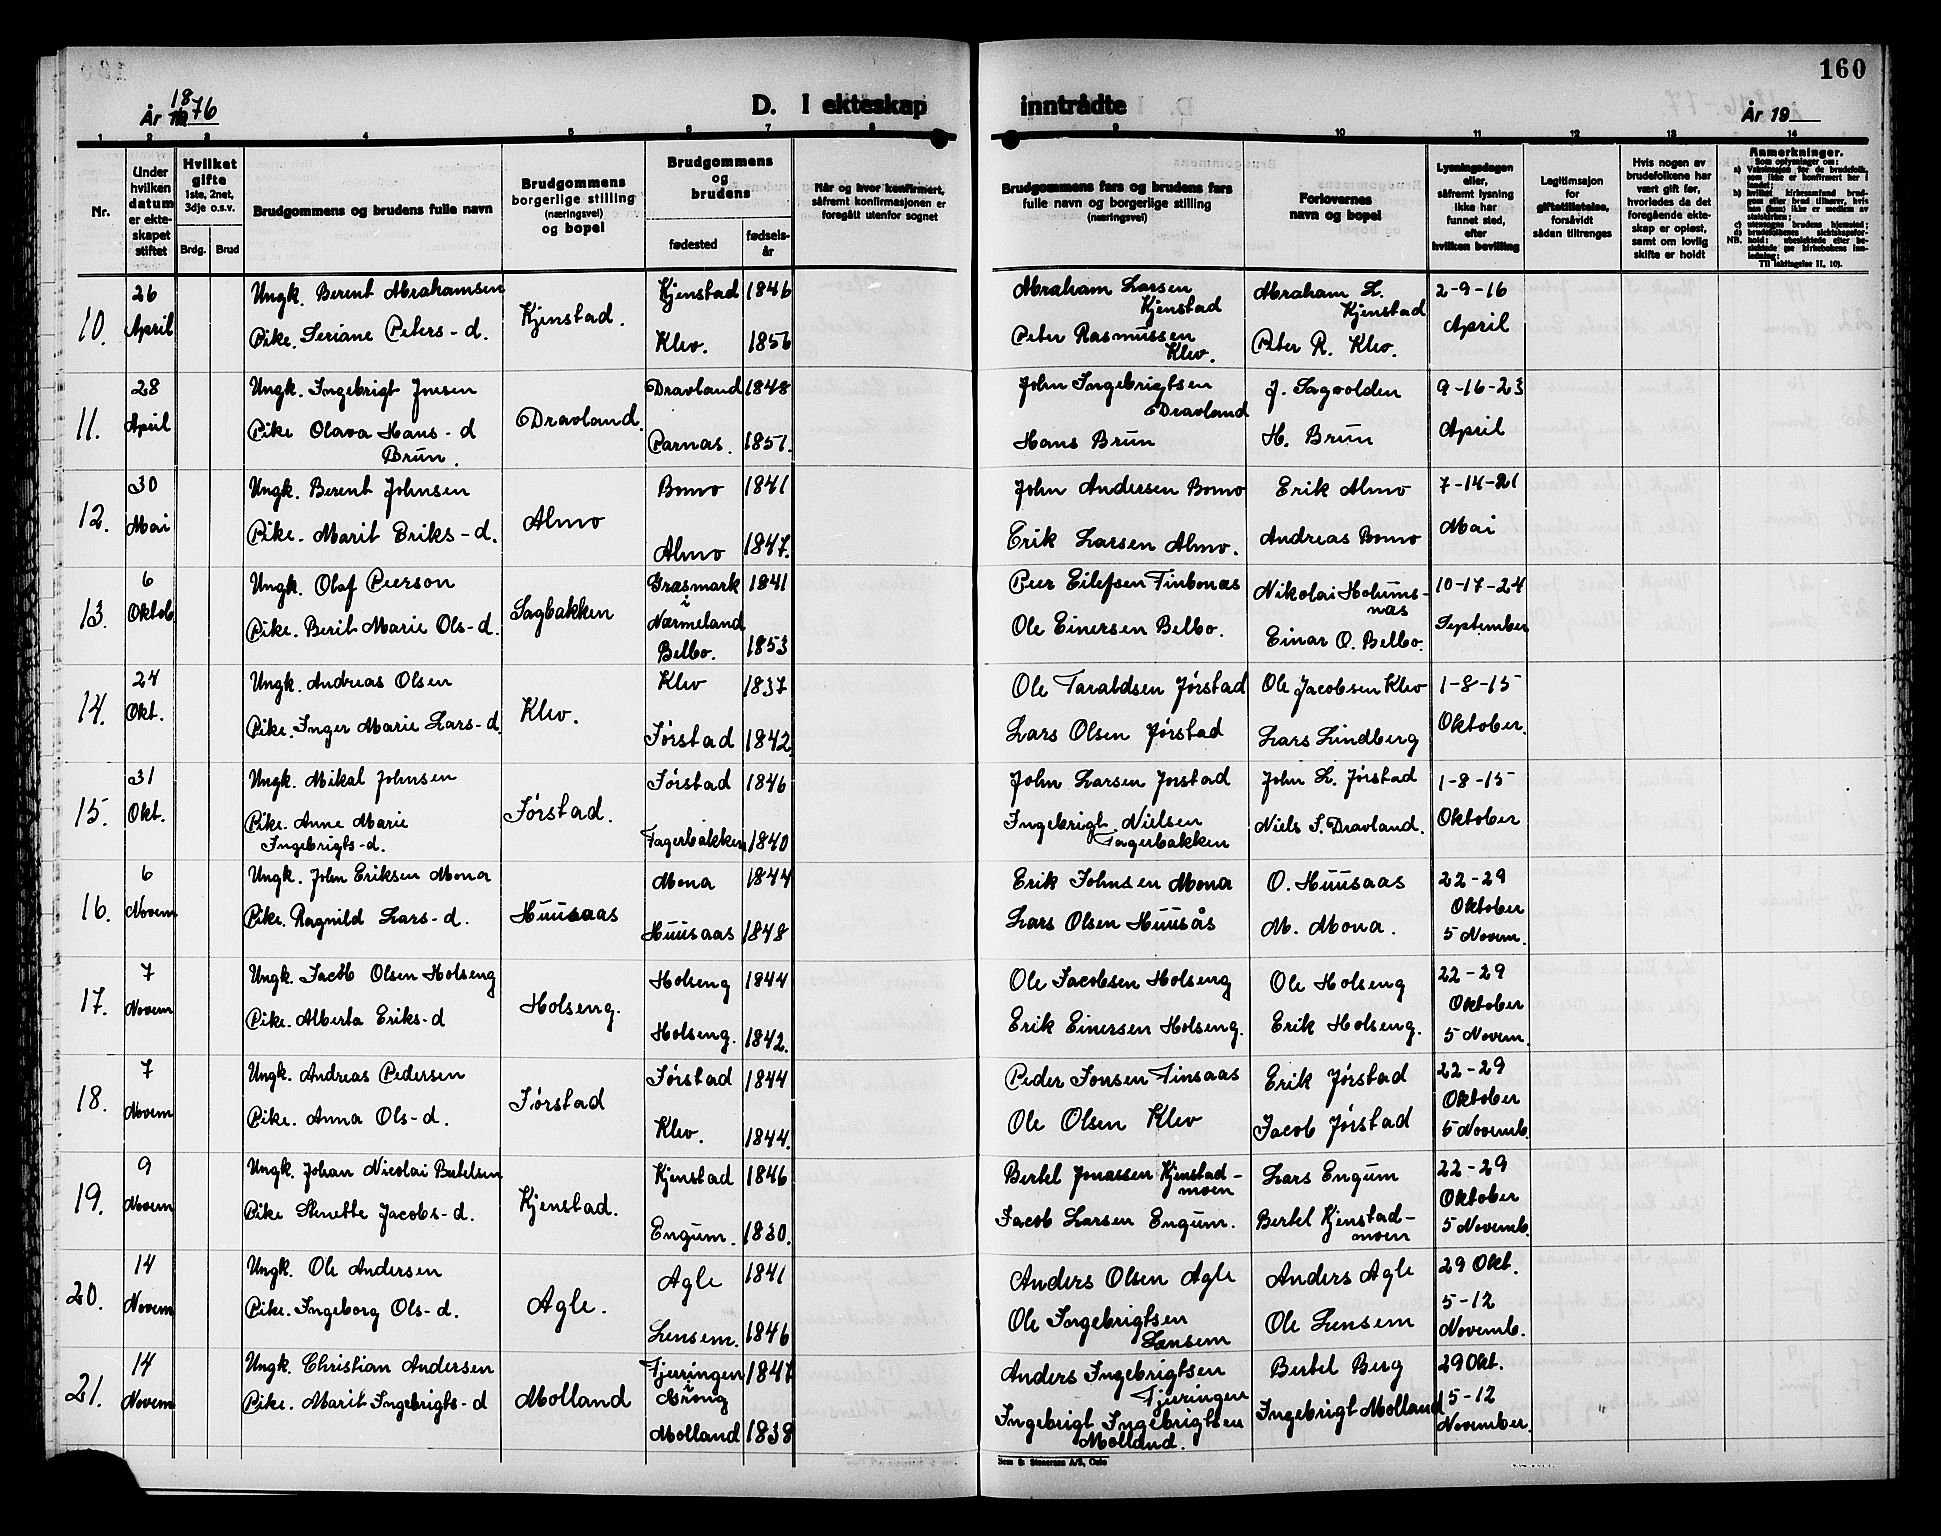 160
År 1876
D. I ekteskap inntrådte
År 19
1 2 3 4 5 6 7 8 9 10 11 12 13 14
Nr.
Under hvilken datum er ekteskapet stiftet
Hvilket gifte 1ste, 2net, 3dje o.s.v.
Brdg. Brud
Brudgommens og brudens fulle navn
Brudgommens borgerlige stilling (næringsvei) og bopel
Brudgommens og brudens
fødested
fødselsår
Når og hvor konfirmert, såfremt konfirmasjonen er foregått utenfor sognet
Brudgommens fars og brudens fars fulle navn og borgerlige stilling (næringsvei)
Forlovernes navn og bopel
Lysningsdagen eller, såfremt lysning ikke har funnet sted, efter hvilken bevilling
Legitimasjon for giftetillatelse, forsåvidt sådan tiltrenges
Hvis nogen av brudefolkene har vært gift før, hvorledes da det foregående ekteskap er opløst, samt om lovlig skifte er holdt
Anmerkninger.
Som oplysninger om:
10. 26 April
Ungk. Berent Abrahamsen
Pike. Seriane Peters-d.
Kjenstad.
Kjenstad 1846
Klev. 1856
Abraham Larsen Kjenstad
Peter Rasmussen Klev.
Abraham L. Kjenstad
Peter R. Klev.
2-9-16 April
11. 28 April
Ungk. Ingebrigt Jonsen
Pike Olava Hans-d Brün.
Dravland.
Dravland 1848
Parnas. 1851.
John Ingebrigtsen Dravland
Hans Brün
J. Sagvolden
H. Brün
9-16-23 April
12. 30 Mai
Ungk. Berent Johnsen
Pike. Marit Eriks-d.
Almo
Bomo 1841
Almo 1847.
John Andersen Bomo
Erik Larsen Almo.
Erik Almo
Andreas Bomo
7-14-21 Mai
13. 6 Oktob
Ungk. Olaf Peerson
Pike. Berit Marie Ols-d.
Sagbakken
Græsmark i Nærmeland 1841
Belbo. 1853
Peer Eilefsen Finbonæs
Ole Einersen Belbo.
Nikolai Holumsnæs
Einar O. Belbo.
10-17-24 September
14. 24 Okt.
Ungk. Andreas Olsen
Pike. Inger Marie Lars-d
Klev.
Klev 1837
Jørstad 1842
Ole Taraldsen Jørstad
Lars Olsen Jørstad
Ole Jacobsen Klev
Lars Lindberg
1-8-15 Oktober.
15. 31 Okt.
Ungk. Mikal Johnsen
Pike. Anne Marie Ingebrigts-d.
Jørstad.
Jørstad 1846
Fagerbakken 1840
John Larsen Jørstad
Ingebrigt Nielsen Fagerbakken
John L. Jørstad
Niels I. Dravland.
1-8-15 Oktober
16. 6 Novem
Ungk. John Eriksen Mona
Pike. Ragnild Lars-d.
Huusaas
Mona 1844
Huusaas 1848
Erik Johnsen Mona
Lars Olsen Huusås
O. Huusaas
M. Mona.
22-29 Oktober
5 Novem.
17. 7 Novem
Ungk. Jacob Olsen Holseng
Pike. Alberta Eriks-d
Holseng.
Holseng 1844
Holseng. 1842.
Ole Jacobsen Holseng
Erik Einersen Holseng.
Ole Holseng
Erik Holseng.
22-29 Oktober
5 Novem.
18. 7 Novem
Ungk. Andreas Pedersen
Pike. Anna Ols-d.
Jørstad
Jørstad 1844
Klev. 1844.
Peder Jonsen Finsaas
Ole Olsen Klev
Erik Jørstad
Jacob Jørstad
22-29 Oktober
5 Novemb.
19. 9 Novem
Ungk. Johan Nicolai Bertelsen
Pike Stenette Jacobs-d.
Kjenstad.
Kjenstad 1846
Engum. 1830.
Bertel Jonassen Kjenstadmoen
Jacob Larsen Engum.
Lars Engum
Bertel Kjenstadmoen
22-29 Oktober
5 Novemb.
20. 14 Novem
Ungk. Ole Andersen
Pike. Ingeborg Ols-d.
Agle.
Agle 1841
Lensem. 1846
Anders Olsen Agle
Ole Ingebrigtsen Lænsem
Anders Agle
Ole Lensem
29 Okt.
5-12 Novemb.
21. 14 Novem
Ungk. Christian Andersen
Pike. Marit Ingebrigts-d
Molland
Fjerringen i Grong 1847
Molland 1838
Anders Ingebrigtsen Fjeringen
Ingebrigt Ingebrigtsen Molland.
Bertel Berg
Ingebrigt Molland
29 Okt.
5-12 November.
Sem & Stenersen A/S, Oslo